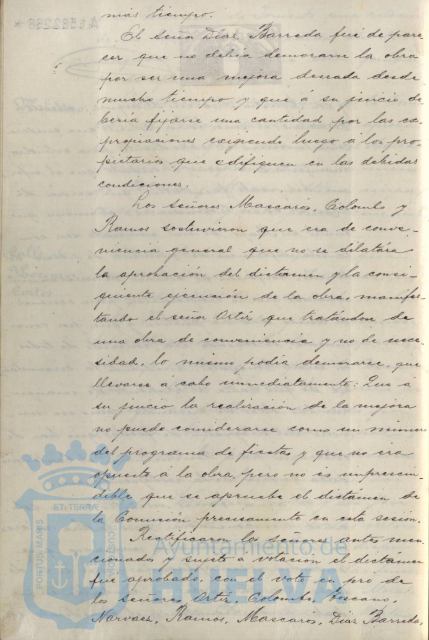 mas tiempo.
El Señor Díaz Barreda fué de pare
cer que no debia demorarse la obra
por ser una mejora deseada desde
mucho tiempo y que á su juicio de
beria fijarse una cantidad por las ex
propiaciones exigiendo luego á los pro
pietarios que edifiquen en las debidas
condiciones.
Los Señores Mascarós, Colombo y
Ramos sostuvieron que era de conve
niencia general que no se dilatára
la aprobación del dictamen y la consi
guiente ejecución de la obra, manifes
tando el señor Ortíz que tratándose de
una obra de conveniencia y no de nece
sidad, lo mismo podia demorarse, que
llevarse á cabo inmediatamente: Que á
su juicio la realización de la mejora
no puede considerarse como un número
del programa de fiestas y que no era
opuesto á la obra, pero no es imprescin
dible que se apruebe el dictamen de
la Comisión precisamente en esta sesion.
Rectificaron los señores antes men
cionados y sujeto á votacion el dictámen
fué aprobado, con el voto en pro de
los señores Ortíz, Colombo,
Narvaez, Ramos, Mascarós, Díaz Barreda,
PORTUS MARIS
ET TERRÆ CUSTODIA
Ayuntamiento de
HUELVA